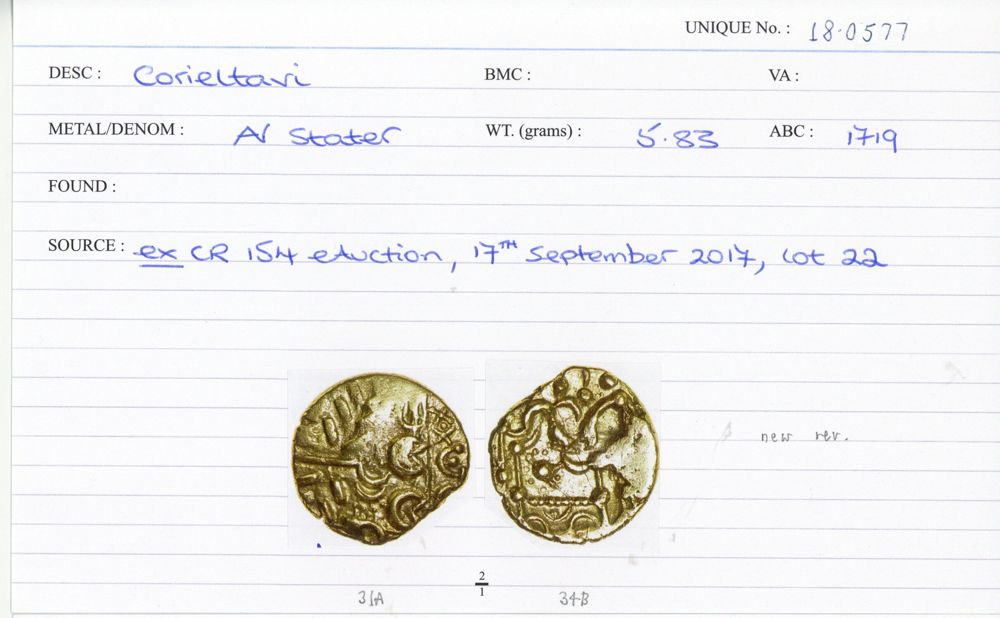 UNIQUE No. : 18.0577
DESC : Corieltavi BMC : VA :
METAL/DENOM : AV Stater WT. (grams) : 5.83 ABC : 1719
FOUND :
SOURCE : ex CR 154 eAuction, 17TH September 2017, Lot 22
new rev.
2
1
31A 34B